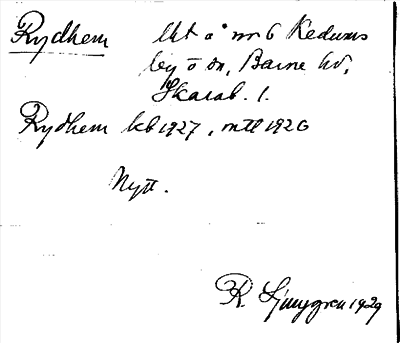 Rydhem lht å nr 6 Kedums
by o sn, Barne hd,
Skarab. l.
Rydhem kb 1927, mtl 1926
Nytt.
R. Ljunggren 1929